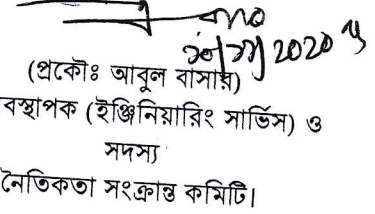 (প্রকৌঃ আবুল বাসার)
বস্থাপক (ইঞ্জিনিয়ারিং সার্ভিস) ও
সদস্য
নৈতিকতা সংক্রান্ত কমিটি।